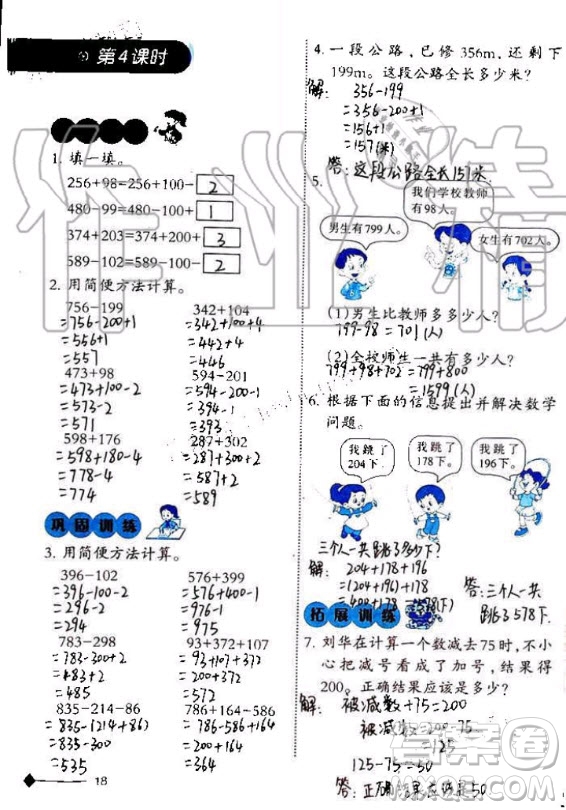 第4课时
1. 填一填。
256+98=256+100-2
480-99=480-100+1
374+203=374+200+3
589-102=589-100-2
2. 用简便方法计算。
756-199
=756-200+1
=556+1
=557
342+104
=342+100+4
=442+4
=446
473+98
=473+100-2
=573-2
=571
594-201
=594-200-1
=394-1
=393
598+176
=598+180-4
=778-4
=774
287+302
=287+300+2
=587+2
=589
巩固训练
3. 用简便方法计算。
396-102
=396-100-2
=296-2
=294
576+399
=576+400-1
=976-1
=975
783-298
=783-300+2
=483+2
=485
93+372+107
=93+107+372
=200+372
=572
835-214-86
=835-(214+86)
=835-300
=535
786+164-586
=786-586+164
=200+164
=364
18
4. 一段公路，已修 356m，还剩下
199m。这段公路全长多少米？
解：356-199
=356-200+1
=156+1
=157(米)
答：这段公路全长157米
5.
我们学校教师
有98人。
男生有799人。
女生有702人。
(1)男生比教师多多少人？
799-98=701(人)
(2)全校师生一共有多少人？
799+98+702=799+800
=1599(人)
6. 根据下面的信息提出并解决数学
问题。
我跳了
204下。
我跳了
178下。
我跳了
196下。
三个人一共跳了多少下？
解：204+178+196
=(204+196)+178
=400+178=578(下)
答：三个人一共
跳了578下.
拓展训练
7. 刘华在计算一个数减去75时，不小
心把减号看成了加号，结果得
200。正确结果应该是多少？
解：被减数+75=200
被减数=200-75
=125
125-75=50
答：正确结果应该是50